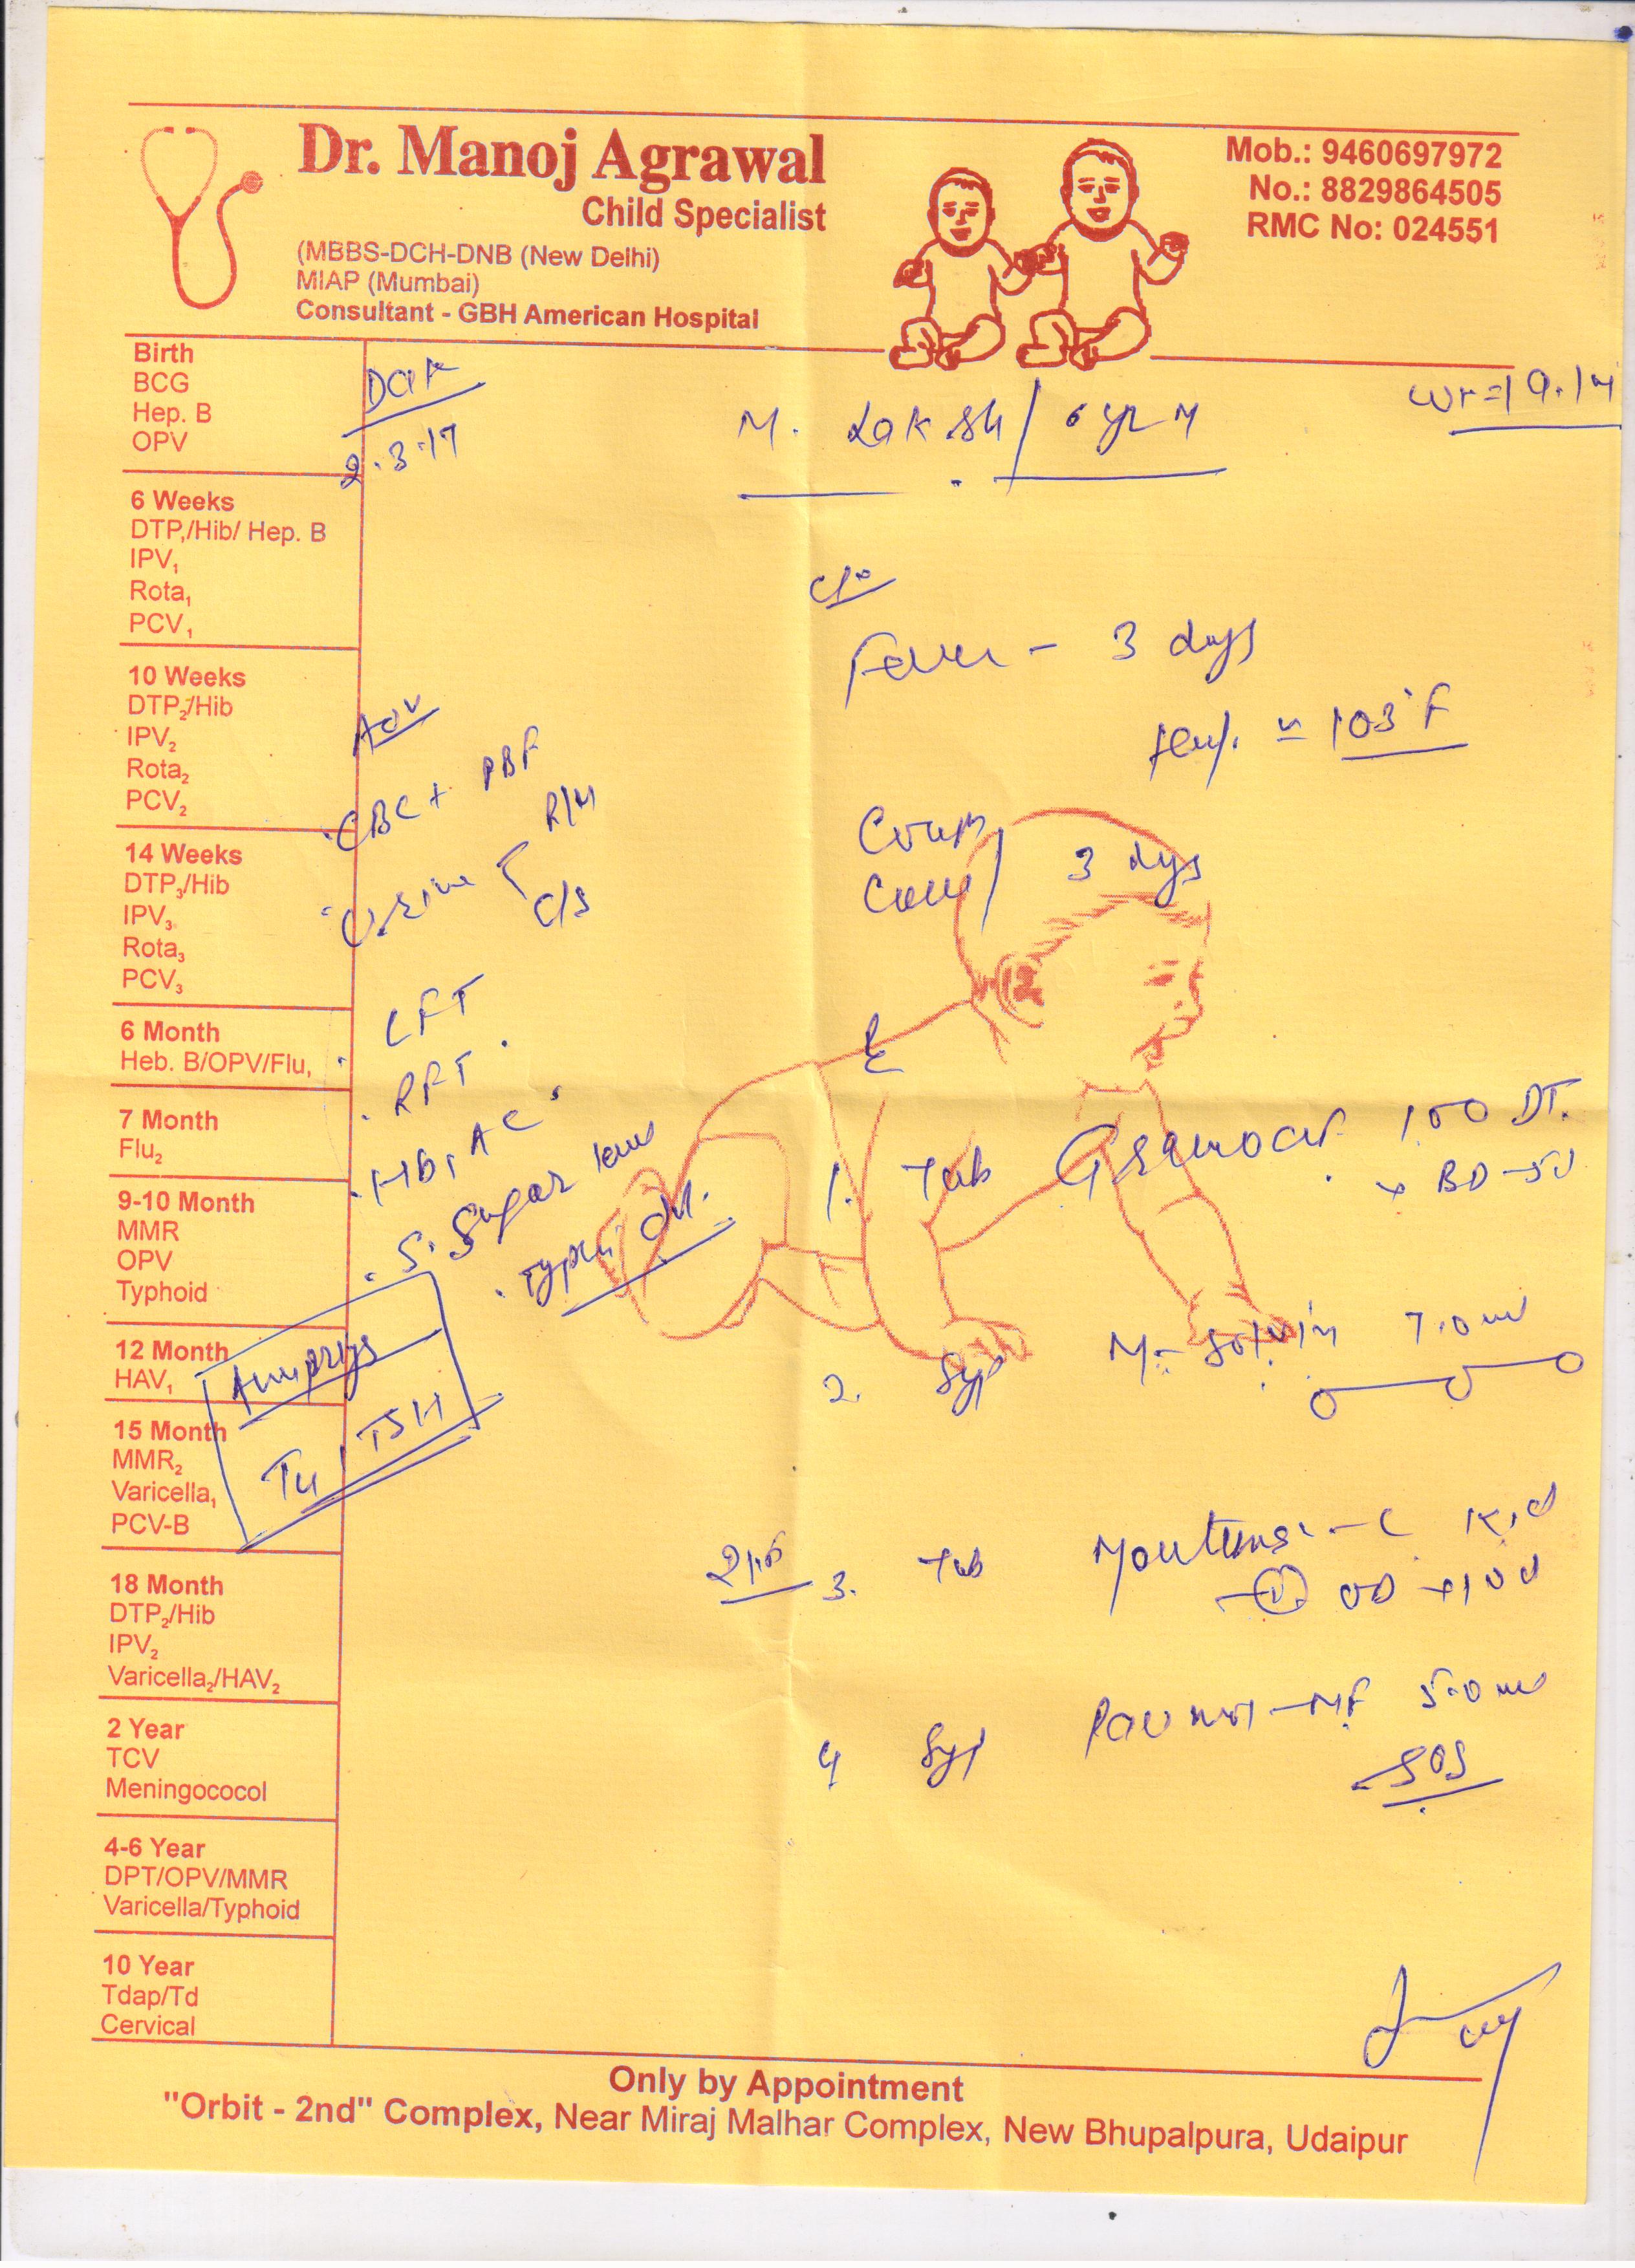 Dr. Manoj Agrawal
Child Specialist
(MBBS-DCH-DNB (New Delhi)
MIAP (Mumbai)
Consultant - GBH American Hospital
Mob.: 9460697972
No.: 8829864505
RMC No: 024551
Birth
BCG
Hep. B
OPV
6 Weeks
DTP,/Hib/ Hep. B
IPV₁
Rota₁
PCV₁
10 Weeks
DTP₂/Hib
IPV₂
Rota₂
PCV₂
14 Weeks
DTP₃/Hib
IPV₃
Rota₃
PCV₃
6 Month
Heb. B/OPV/Flu,
7 Month
Flu₂
9-10 Month
MMR
OPV
Typhoid
12 Month
HAV₁
15 Month
MMR₂
Varicella₁
PCV-B
18 Month
DTP₂/Hib
IPV₂
Varicella₂/HAV₂
2 Year
TCV
Meningococol
4-6 Year
DPT/OPV/MMR
Varicella/Typhoid
10 Year
Tdap/Td
Cervical
2.3.17
Adv
CBC + PBF
Urine R/M
C/S
LFT
RFT
HB1AC
S. Sugar
T4, TSH
M. Laksh / 6 yr M
c/o
Fever - 3 days
temp. = 103°F
3 days
1. Tab 100 DT.
BD
2. Syp 7.0 ml
3. Tab Kid
OD
4 Syp 5.0 ml
SOS
Only by Appointment
"Orbit - 2nd" Complex, Near Miraj Malhar Complex, New Bhupalpura, Udaipur